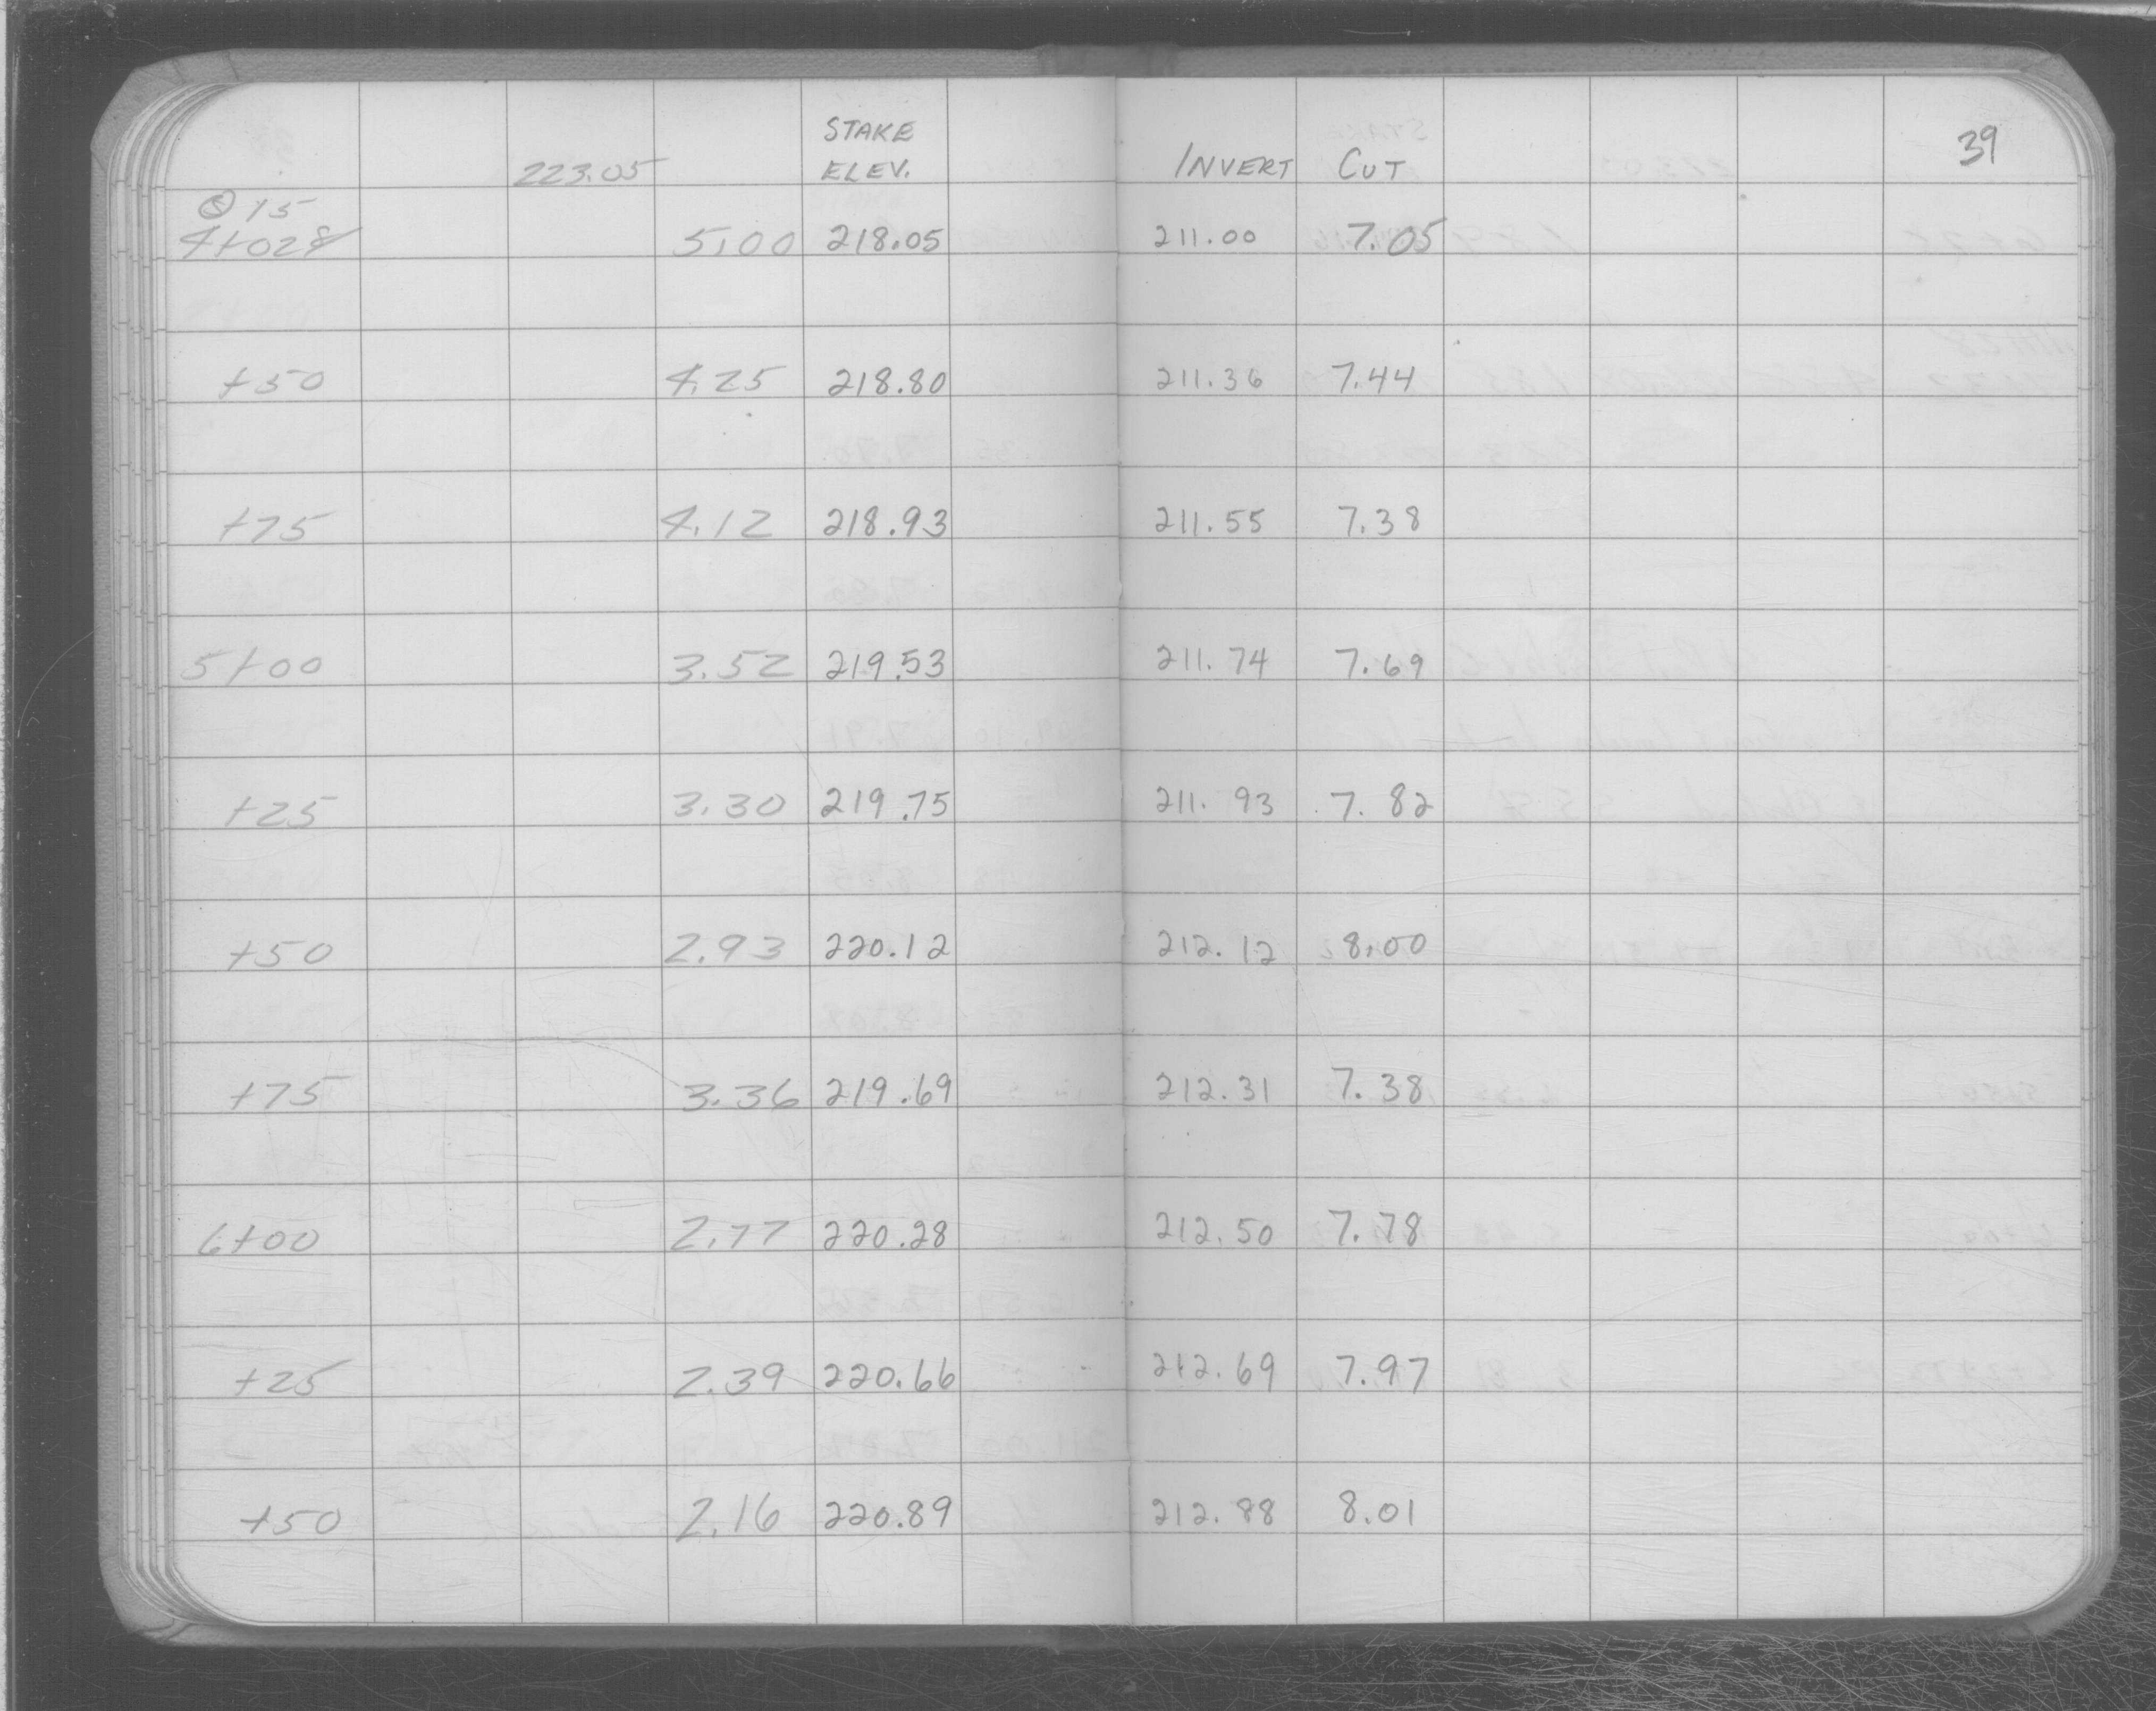 39
STAKE
223.05 ELEV. INVERT CUT
15
4+028 5.00 218.05 211.00 7.05
+50 4.25 218.80 211.36 7.44
+75 4.12 218.93 211.55 7.38
5+00 3.52 219.53 211.74 7.69
+25 3.30 219.75 211.93 7.82
+50 2.93 220.12 212.12 8.00
+75 3.36 219.69 212.31 7.38
6+00 2.77 220.28 212.50 7.78
+25 2.39 220.66 212.69 7.97
+50 2.16 220.89 212.88 8.01